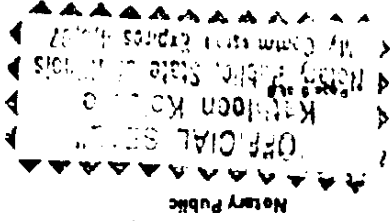 Notary Public
"OFFICIAL SEAL"
Kathleen
Notary Public, State of Illinois
My Commission Expires